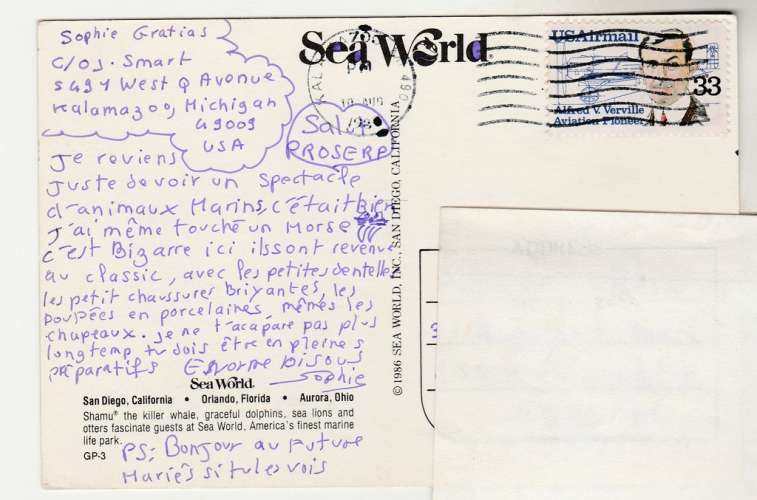 Sophie Gratias
C/O J. Smart
5491 West Q Avenue
Kalamazoo, Michigan
49009
USA
Salut
PROSERP
Je reviens
juste de voir un spectacle
d'animaux Marins, c'était Bien
j'ai même touché un Morse
c'est Bizarre ici ils sont revenue
au classic, avec les petites dentelles
les petit chaussures Briyantes, les
poupées en porcelaines, mêmes les
chapeaux. je ne t'acapare pas plus
longtemp, tu dois être en pleine s
préparatifs Enorme bisous
Sophie
Sea World
San Diego, California • Orlando, Florida • Aurora, Ohio
Shamu® the killer whale, graceful dolphins, sea lions and
otters fascinate guests at Sea World, America's finest marine
life park.
GP-3
PS: Bonjour au Future
Mariés si tu les vois
Sea World
©1986 SEA WORLD, INC., SAN DIEGO, CALIFORNIA
PM
USAirmail
33
Alfred V. Verville
Aviation Pioneer